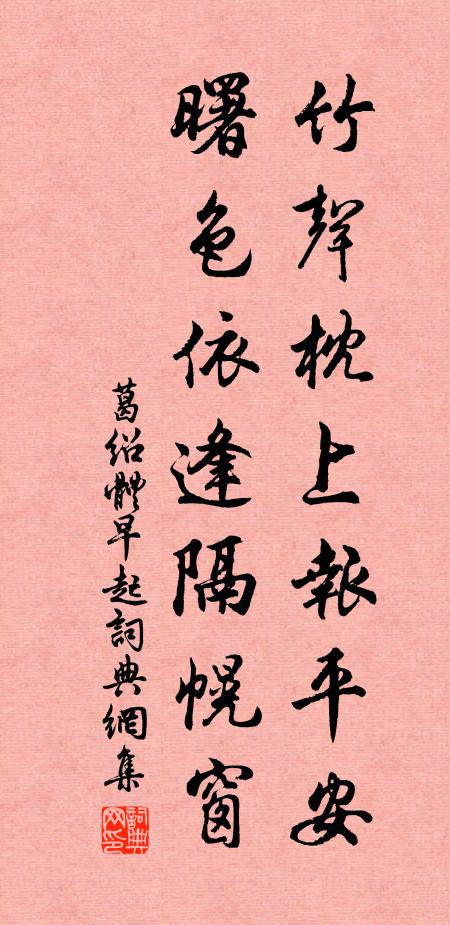 竹聲枕上報平安
曙色依逢隔幌窗
葛紹體早起詞典網集
詞典网印